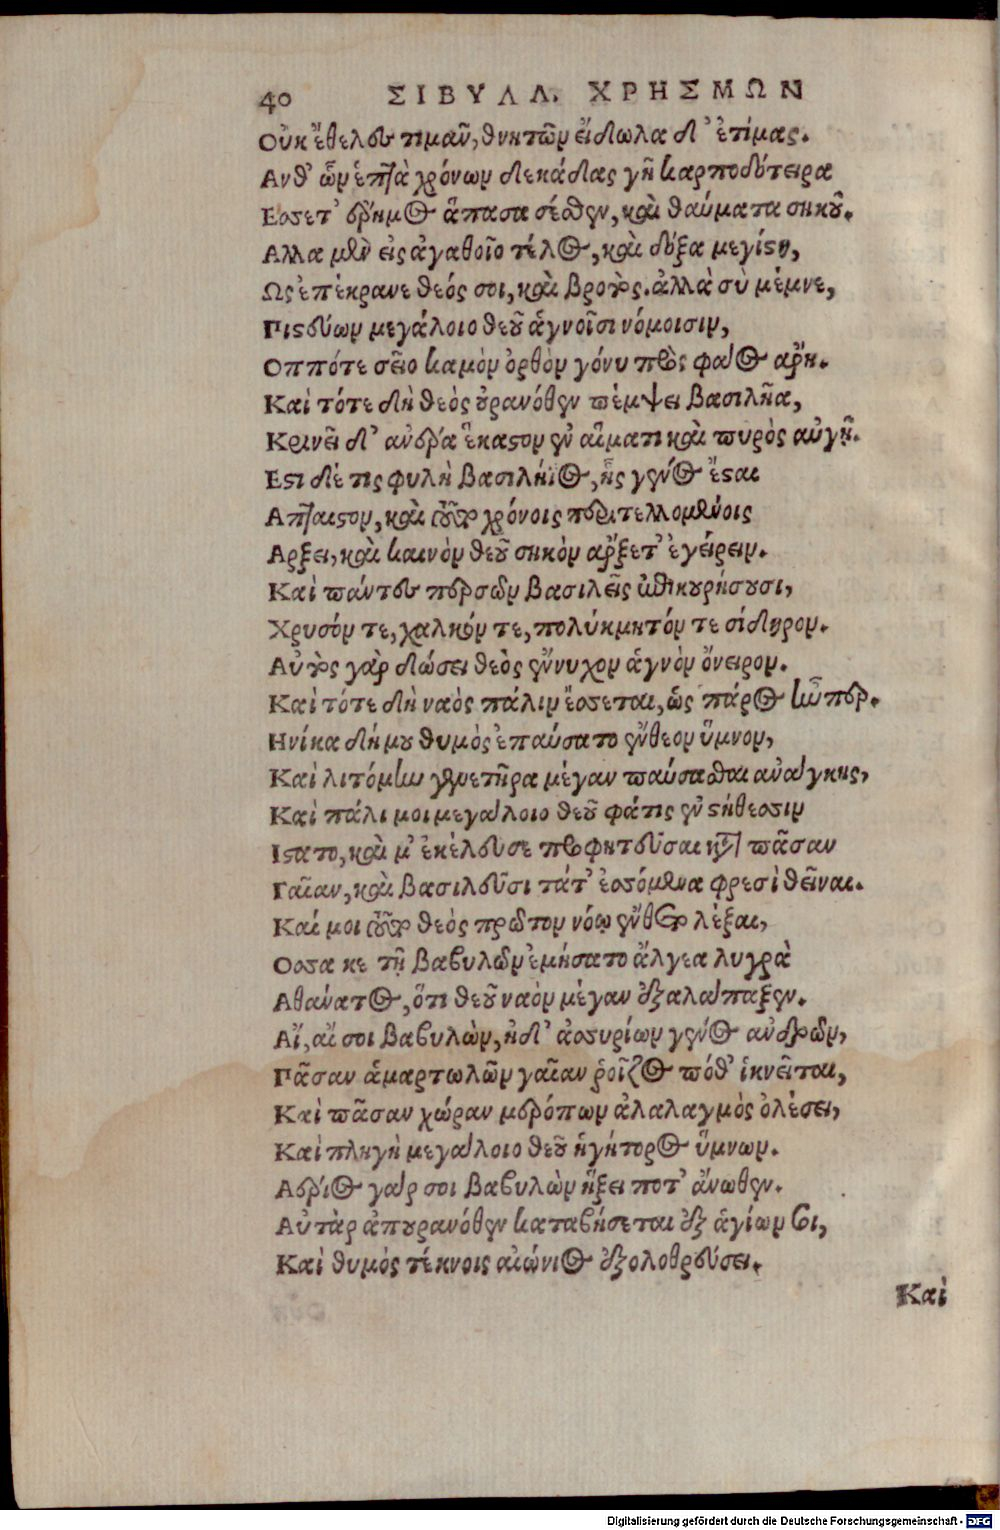 40 ΣΙΒΥΛΛ. ΧΡΗΣΜΩΝ
Οὐκ ἔθελες τιμᾶν, θνητῶν εἴδωλα δ' ἐτίμας.
Ανθ' ὧν ἑπτὰ χρόνων δεκάδας γῆ καρποδότειρα
Εσσετ' ἔρημος ἅπασα σέθεν, καὶ θαύματα σηκοῦ.
Αλλα μὲν εἰς ἀγαθοῖο τέλος, καὶ δόξα μεγίστη,
Ως ἐπέκρανε θεός σοι, καὶ βροτός. ἀλλὰ σὺ μέμνε,
Πιστεύων μεγάλοιο θεοῦ ἁγνοῖσι νόμοισιν,
Οππότε σεῖο καμὸν ὀρθὸν γόνυ πρὸς φάος ἄρῃ.
Καὶ τότε δὴ θεὸς οὐρανόθεν πέμψει βασιλῆα,
Κρινεῖ δ' ἄνδρα ἕκαστον ἐν αἵματι καὶ πυρὸς αὐγῇ.
Εστι δέ τις φυλὴ βασιλήϊος, ἧς γένος ἔσται
Απταιστον, καὶ τοῦτο χρόνοις περιτελλομένοις
Αρξει, καὶ καινὸν θεοῦ σηκὸν ἄρξετ' ἐγείρειν.
Καὶ πάντες περσῶν βασιλεῖς ἐπικουρήσουσι,
Χρυσόν τε, χαλκόν τε, πολύκμητόν τε σίδηρον.
Αὐτὸς γὰρ δώσει θεὸς ἔννυχον ἁγνὸν ὄνειρον.
Καὶ τότε δὴ ναὸς πάλιν ἔσσεται, ὡς πάρος ἦεν περ.
Ηνίκα δή μου θυμὸς ἐπαύσατο ἔνθεον ὕμνον,
Καὶ λιτόμην γενετῆρα μέγαν παύσασθαι ἀνάγκης,
Καὶ πάλι μοι μεγάλοιο θεοῦ φάτις ἐν στήθεσσιν
Ιστατο, καὶ μ' ἐκέλευσε προφητεῦσαι κατὰ πᾶσαν
Γαῖαν, καὶ βασιλεῦσι τάτ' ἐσσόμενα φρεσὶ θεῖναι.
Καί μοι τοῦτο θεὸς πρῶτον νόῳ ἔνθετο λέξαι,
Οσσα κε τῇ Βαβυλῶν ἐμήσατο ἄλγεα λυγρὰ
Αθάνατος, ὅτι θεοῦ ναὸν μέγαν ἐξαλάπαξεν.
Αἴ, αἴ σοι Βαβυλὼν, ἠδ' ἀσσυρίων γένος ἀνδρῶν,
Πᾶσαν ἁμαρτωλῶν γαῖαν ῥοῖζος πόθ' ἱκνεῖται,
Καὶ πᾶσαν χώραν μερόπων ἀλαλαγμὸς ὀλέσει,
Καὶ πληγὴ μεγάλοιο θεοῦ ἡγήτορος ὕμνων.
Αέριος γάρ σοι Βαβυλὼν ἥξει ποτ' ἄνωθεν.
Αὐτὰρ ἀπ' οὐρανόθεν καταβήσεται ἐξ ἁγίων σοι,
Καὶ θυμὸς τέκνοις αἰώνιος ἐξολοθρεύσει.
Καὶ
Digitalisierung gefördert durch die Deutsche Forschungsgemeinschaft - DFG